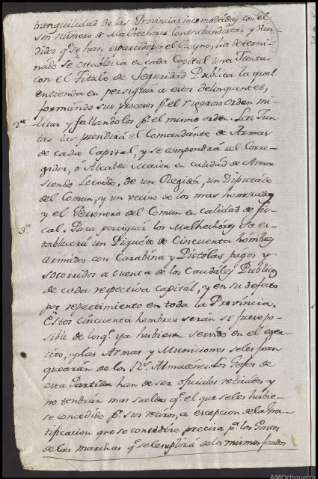 tranquilidad de las Provincias incomodadas con el
sin numero de Malhechores Contrabandistas, y Van-
didos qe. se han esparcido el Reyno, ha determi-
nado se establezca en cada Capital una Junta
con el Titulo de Seguridad Publica la qual
entienda en perseguir a estos delinquentes,
formando sus Procesos pr. el rigoroso orden mi-
litar y fallandolos pr. el mismo orden. Las Jun-
tas las presidirá el Comandante de Armas
de cada Capital, y se compondrá del Corre-
gidor, ó Alcalde mayor en calidad de Ase-
sor siendo Letrado, de un Regidor, un Diputado
del Comun, y un vecino de los mas honrados
y el Personero del Comun en calidad de fis-
cal. Para perseguir los Malhechores se es-
tablecerá un Piquete de Cincuenta hombres
armados con Carabina y Pistolas pagos y
socorridos a cuenta de los Caudales Publicos
de cada respectiva Capital, y en su defecto
por repartimiento en toda la Provincia.
Estos cincuenta hombres serán si fuere po-
sible de los qe. ya hubieren servido en el exer-
cito, y las Armas y Municiones se les fran-
quearán de los Rs. Almacenes. Los Gefes de
esta Partida han de ser oficiales retirados y
no tendrán mas sueldo qe. el que se les hubie-
se concedido pr. sus retiros, a excepcion de la Gra-
tificacion que se considere precisa pa. los Gastos
de las marchas qe. se les suplirá de los mismos fondos
AMOrtigueira